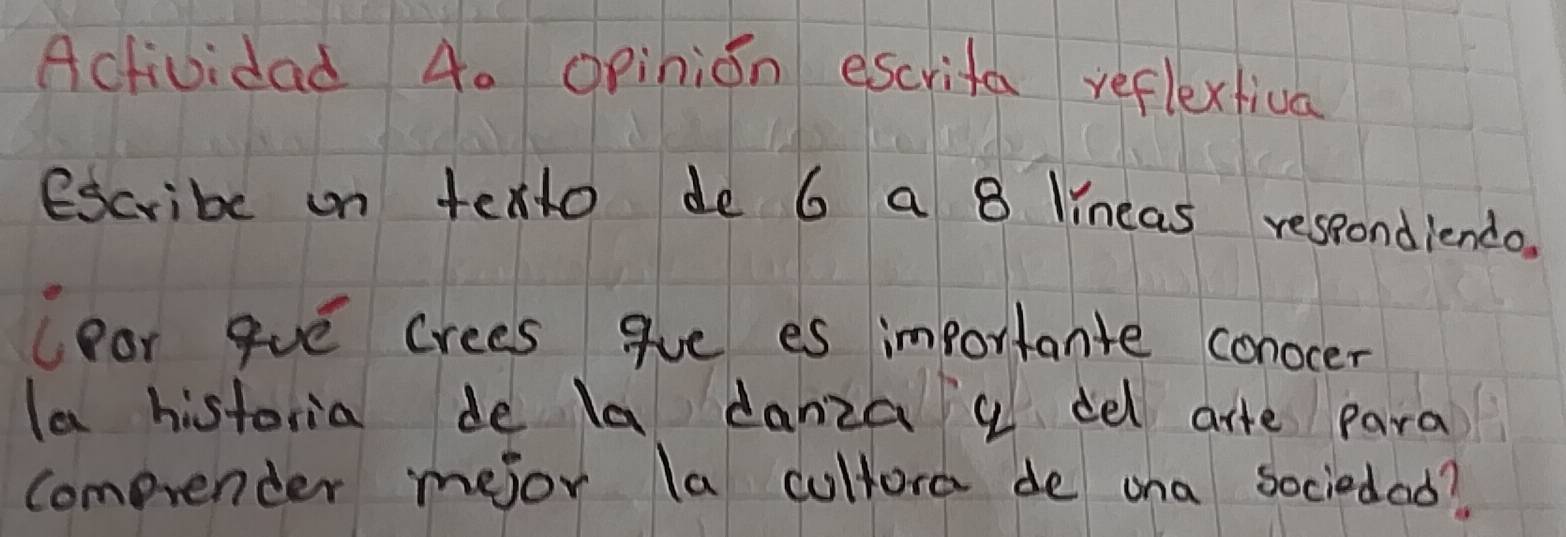 Actividad 4. opinión escrita reflextiva
Escribe un texto de 6 a 8 líneas respondiendo.
¿Por qué crees que es importante conocer
la historia de la danza y del arte para
comprender mejor la cultura de una sociedad?